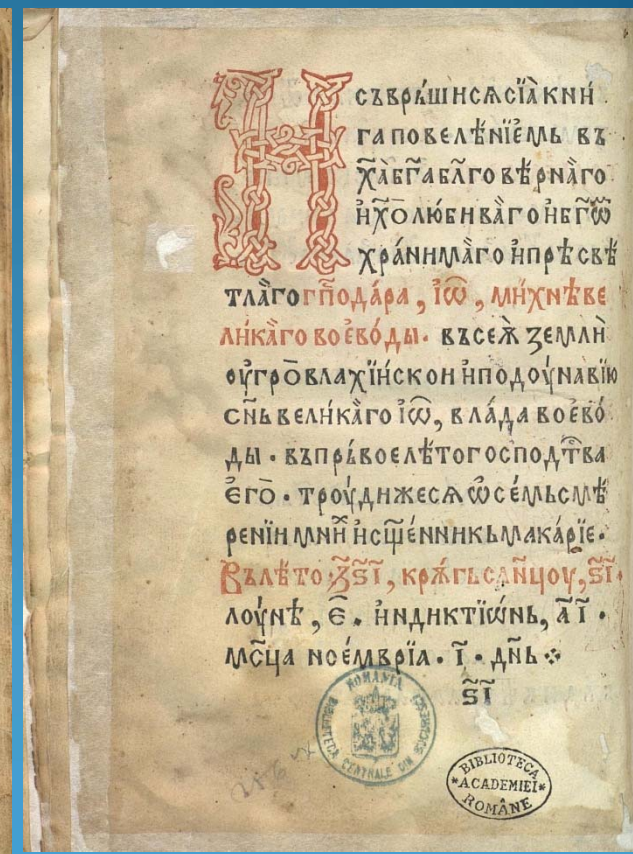 Н съврꙿшисѧ сїа̀ кнѝ
га повелѣнїємь въ
х҃а̀ бг҃а бл҃говѣрна̀го
и҆х҃о̄ лю́бива̀го и҆бг҃ѡ҃
хра́нима̀го и҆прѣсвѣ
тла̀го гп҃ода́ра, і҆ѡ҃, ми́хнѣ ве
ли́ка̀го воє҆во́ды. въсеѧ̀ землѝ
ѹ҆гро̄влахїи҆ской и҆подѹ́навїю
сн҃ь вели́ка̀го і҆ѡ҃, вла́да воє҆во́
ды. въпрꙿвое лѣто господ҃тва
є҆го̀. трѹ́дижесѧ ѡ҆се́мь смѣ
ренїи мни́х и҆сщ҃е́нникь мака́рїе.
Вълѣто ҂ꙁ҃ѕ҃і҃, крѫ́гь слн҃цоу, ѕ҃і҃.
лѹ́нѣ, є҃. и҆ндиктїѡ́нь, а҃і҃.
мсц҃а ное́мврїа. і҃. дн҃ь
ѕ҃і҃
ROMANIA
BIBLIOTECA CENTRALE DIN
BIBLIOTECA
ACADEMIEI
ROMÂNE